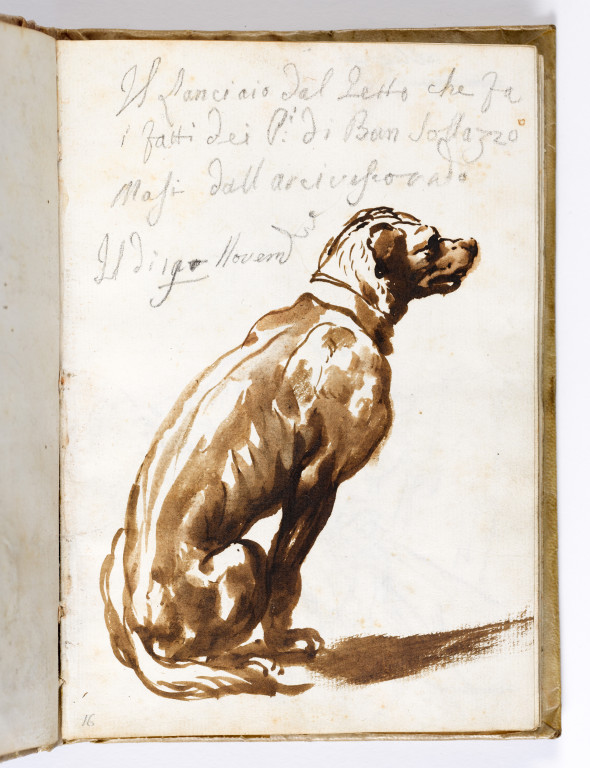 Il Lanciaio dal Tetto che fa
i fatti dei P.i di Buon Sollazzo
Masi dall arcivescovado
Il di 19 Novem
16